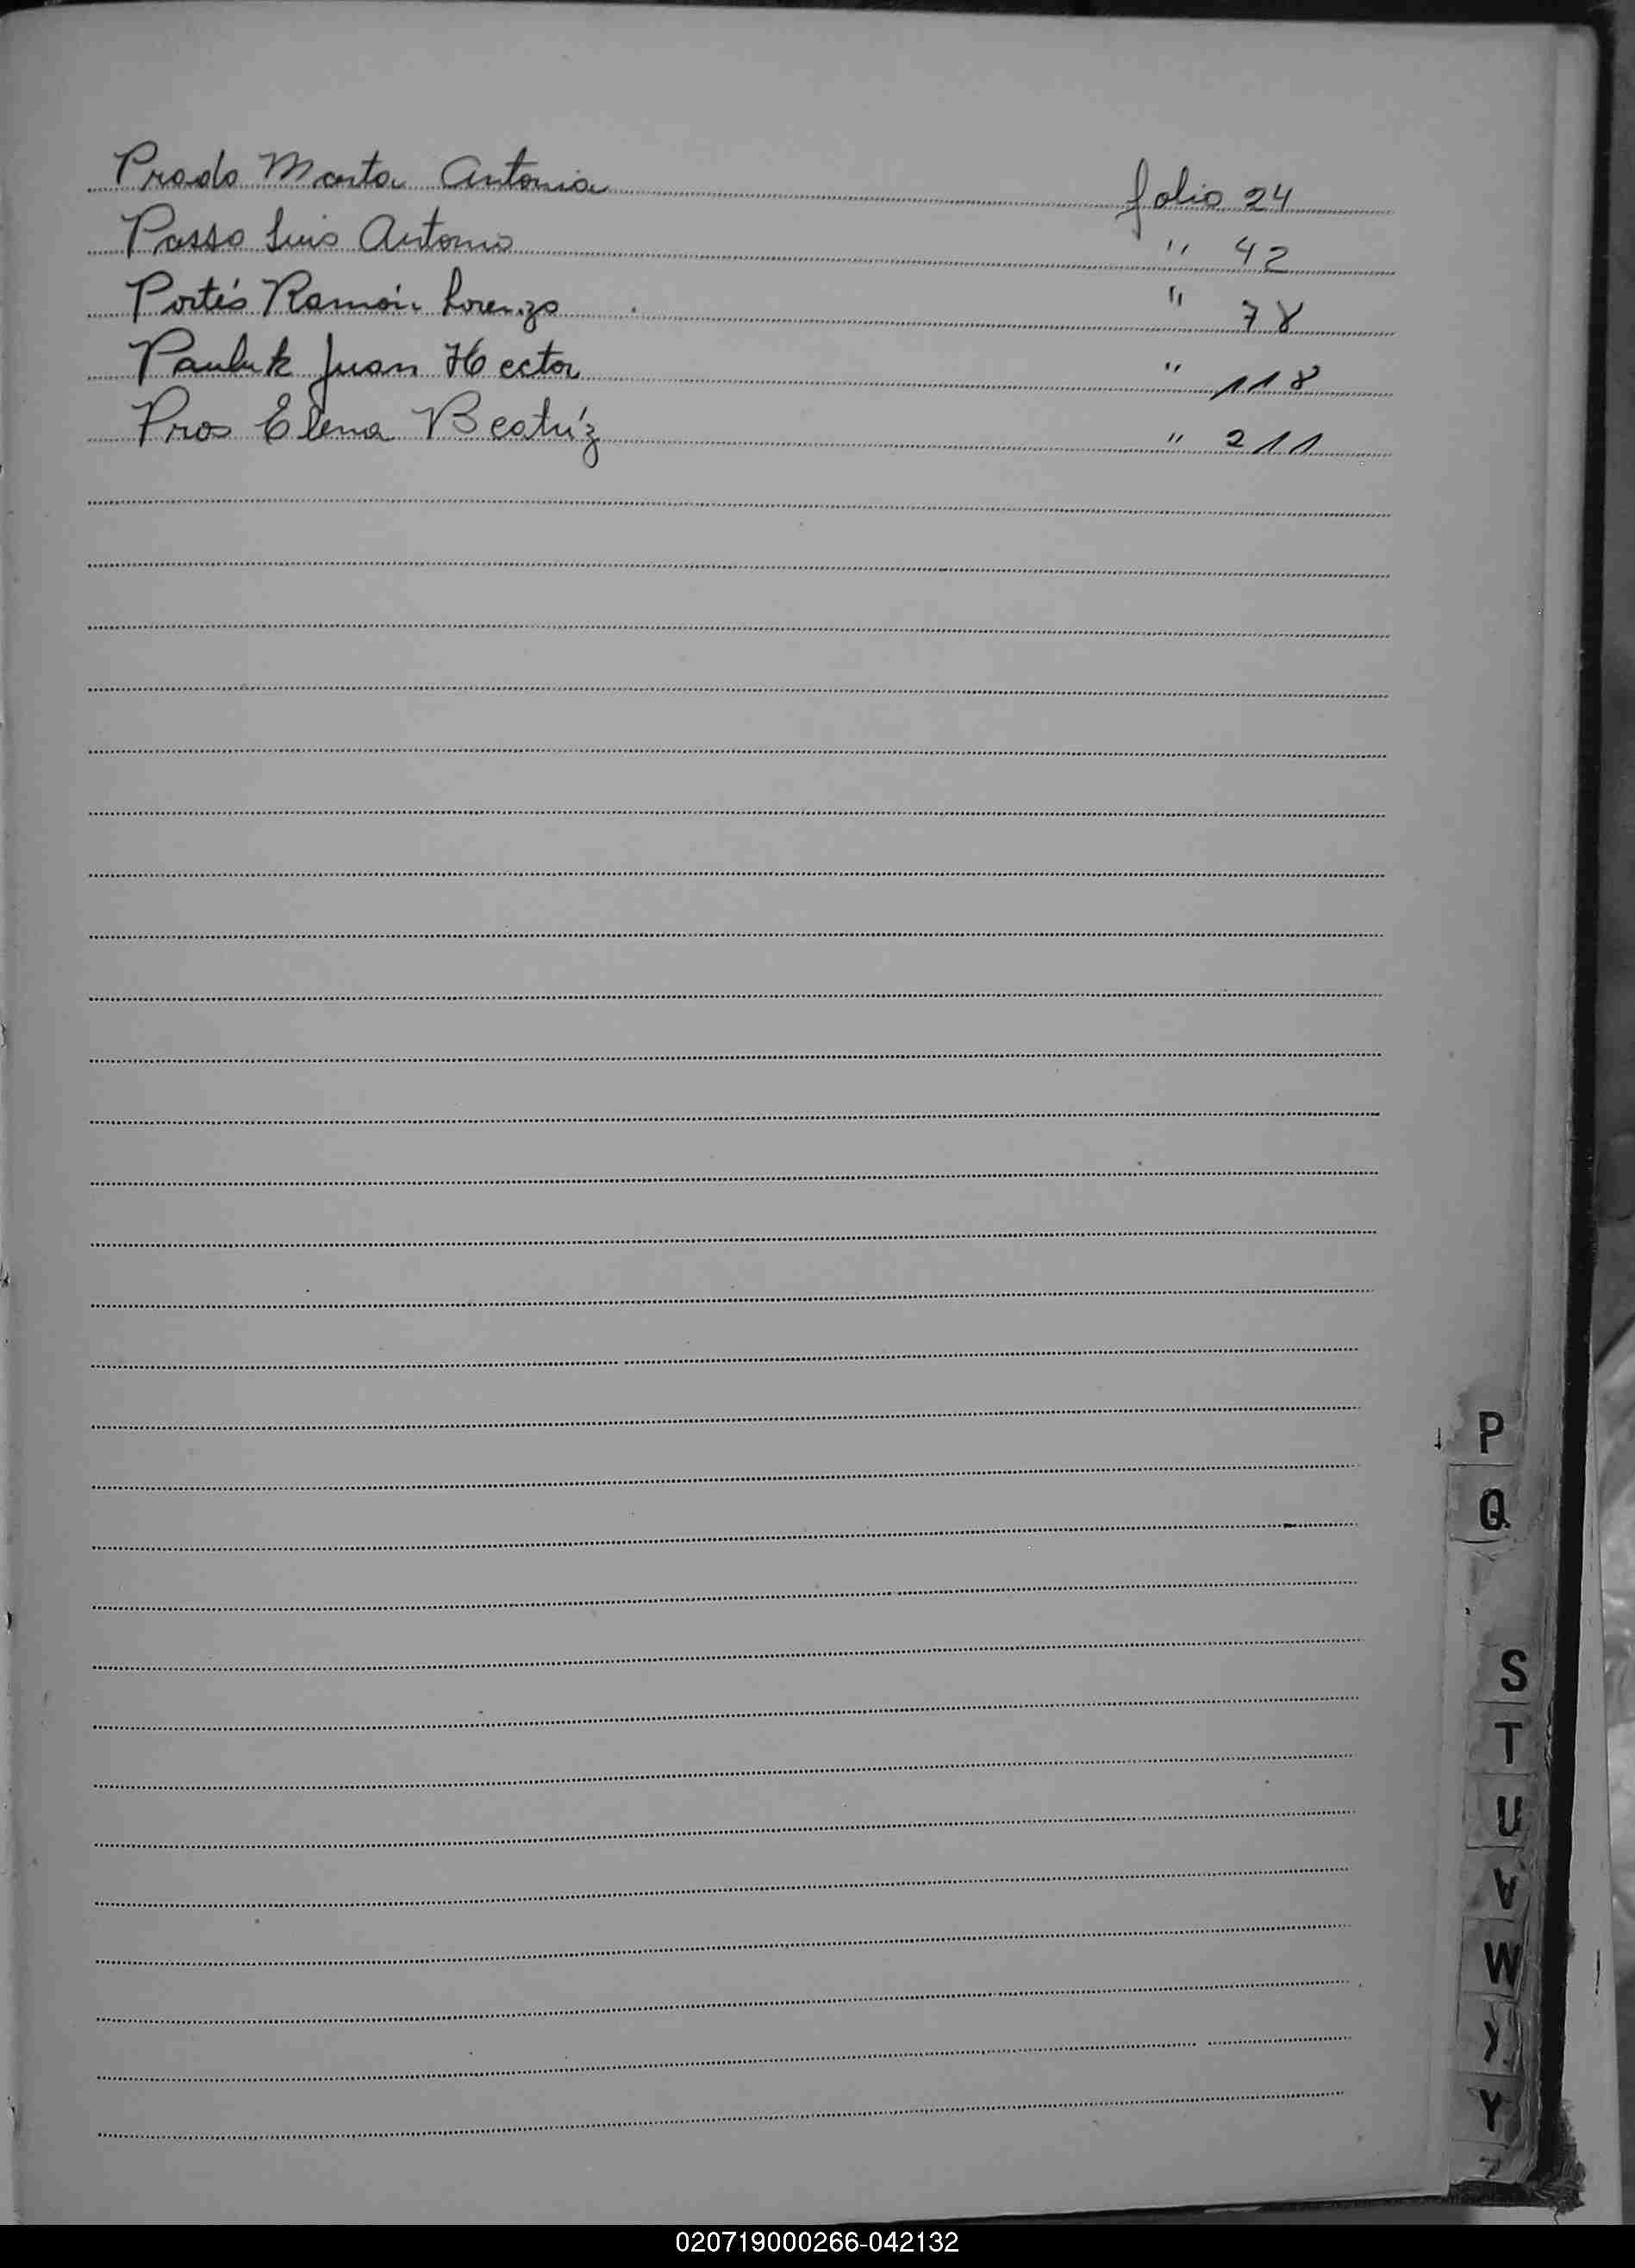 Prado Marta Antonia folio 24
Passo Luis Antonio " 42
Portés Ramón Lorenzo " 78
Pauluk Juan Hector " 118
Pros Elena Beatríz " 211
P
Q
S
T
U
V
W
Y
Z
020719000266-042132